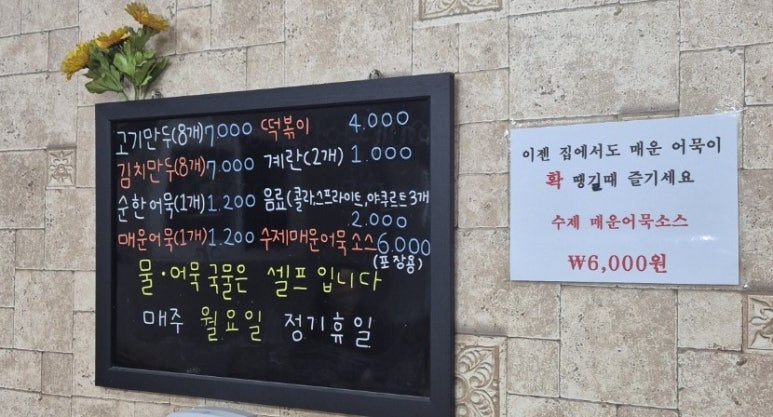 고기만두(8개) 7,000 떡볶이 4.000
김치만두(8개) 7.000 계란(2개) 1.000
순한어묵(1개) 1.200 음료(콜라,스프라이트,야쿠르트3개
2.000
매운어묵(1개) 1.200 수제매운어묵소스 6,000
(포장용)
물·어묵 국물은 셀프입니다
매주 월요일 정기휴일
이젠 집에서도 매운 어묵이
확 땡길때 즐기세요
수제 매운어묵소스
₩6,000원